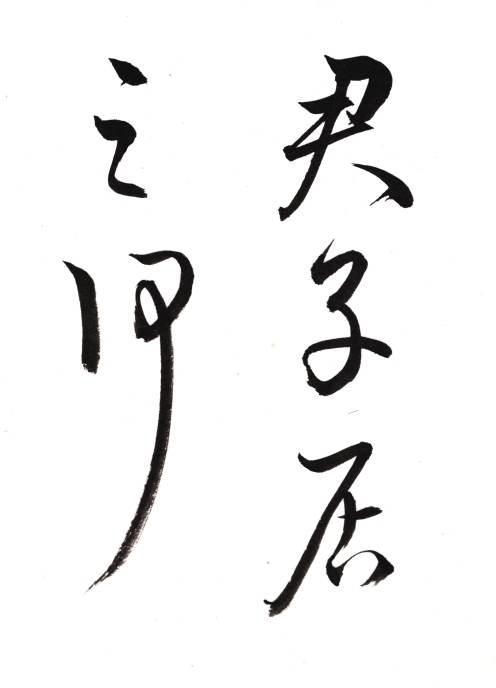 君子居
之何